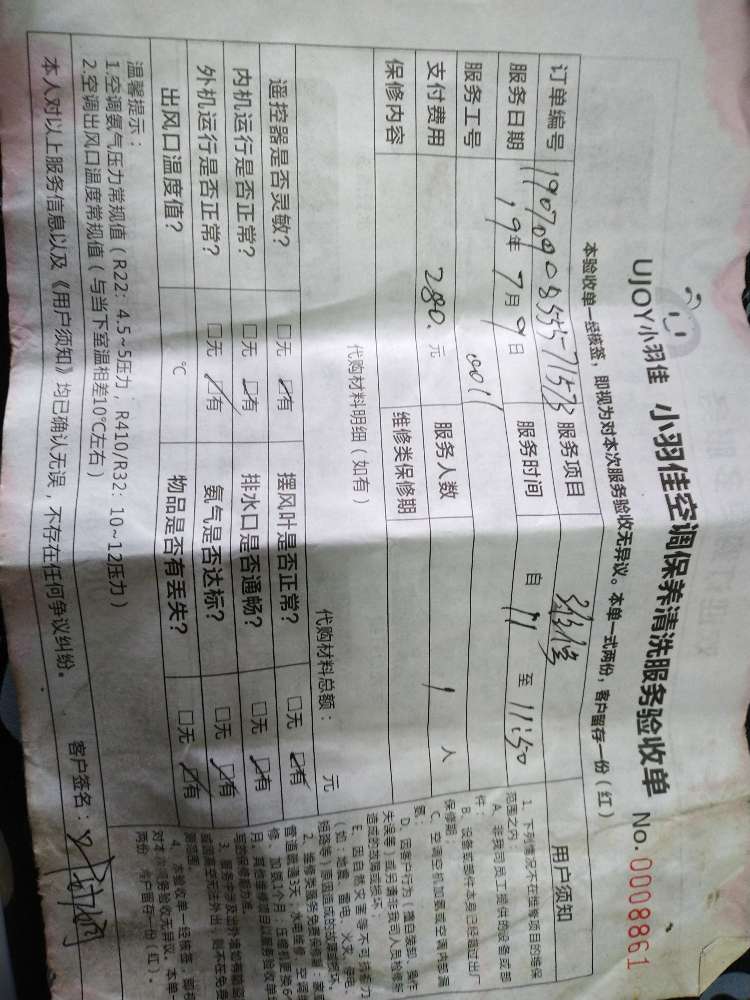 UJOY小羽佳 小羽佳空调保养清洗服务验收单 No.0008861
本验收单一经核签，即视为对本次服务验收无异议。本单一式两份，客户留存一份（红）
订单编号 19070908555-71573 服务项目 维修
服务日期 19年7月9日 服务时间 自 11 至 11:50
服务工号 001
支付费用 280. 元 服务人数 1 人
保修内容 维修类保修期
代购材料明细（如有） 代购材料总额： 元
遥控器是否灵敏？ □无 ☑有 摆风叶是否正常？ □无 ☑有
内机运行是否正常？ □无 ☑有 排水口是否通畅？ □无 ☑有
外机运行是否正常？ □无 ☑有 氨气是否达标？ □无 ☑有
出风口温度值？ ℃ 物品是否有丢失？ □无 ☑有
温馨提示：
1.空调氨气压力常规值（R22：4.5~5压力，R410/R32：10~12压力）
2.空调出风口温度常规值（与当下室温相差10℃左右）
本人对以上服务信息以及《用户须知》均已确认无误，不存在任何争议纠纷。 客户签名：
用户须知
1、下列情况不在维修项目的维保
范围之内：
A、非我司员工提供的设备或部
件；
B、设备或部件本身已经超过出厂
保修期；
C、空调空机加氨或空调内部漏
氨；
D、因客户行为（擅自装卸、操作
失误等）或另请非我司人员检修所
造成的故障或损坏；
E、因自然灾害等不可抗拒力
（如：地震、雷电、火灾、停电、
短路等）原因造成的故障或损坏。
2、维修类服务免费保修期：家庭